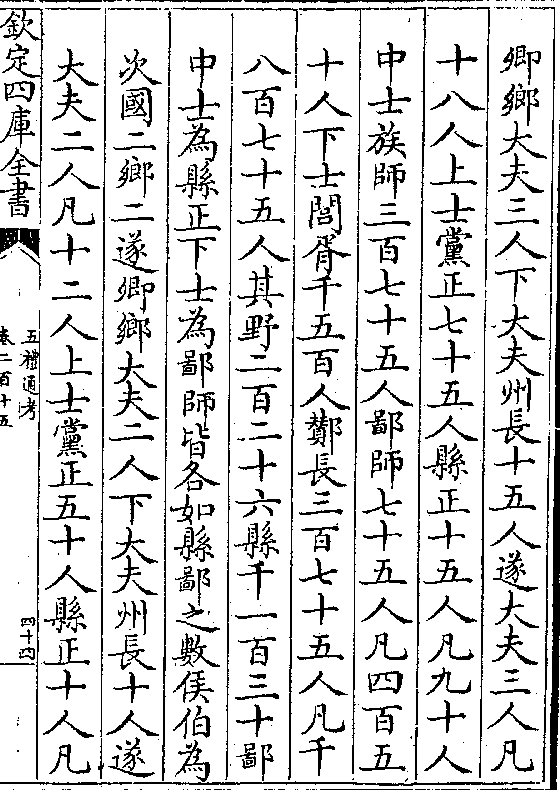 卿鄉大夫三人下大夫州長十五人遂大夫三人凡
十八人上士黨正七十五人縣正十五人凡九十人
中士族師三百七十五人鄙師七十五人凡四百五
十人下士閭胥千五百人酇長三百七十五人凡千
八百七十五人其野二百二十六縣千一百三十鄙
中士為縣正下士為鄙師皆各如縣鄙之數侯伯為
次國二鄉二遂卿鄉大夫二人下大夫州長十人遂
大夫二人凡十二人上士黨正五十人縣正十人凡
欽定四庫全書
五禮通考
卷二百十五
四十四